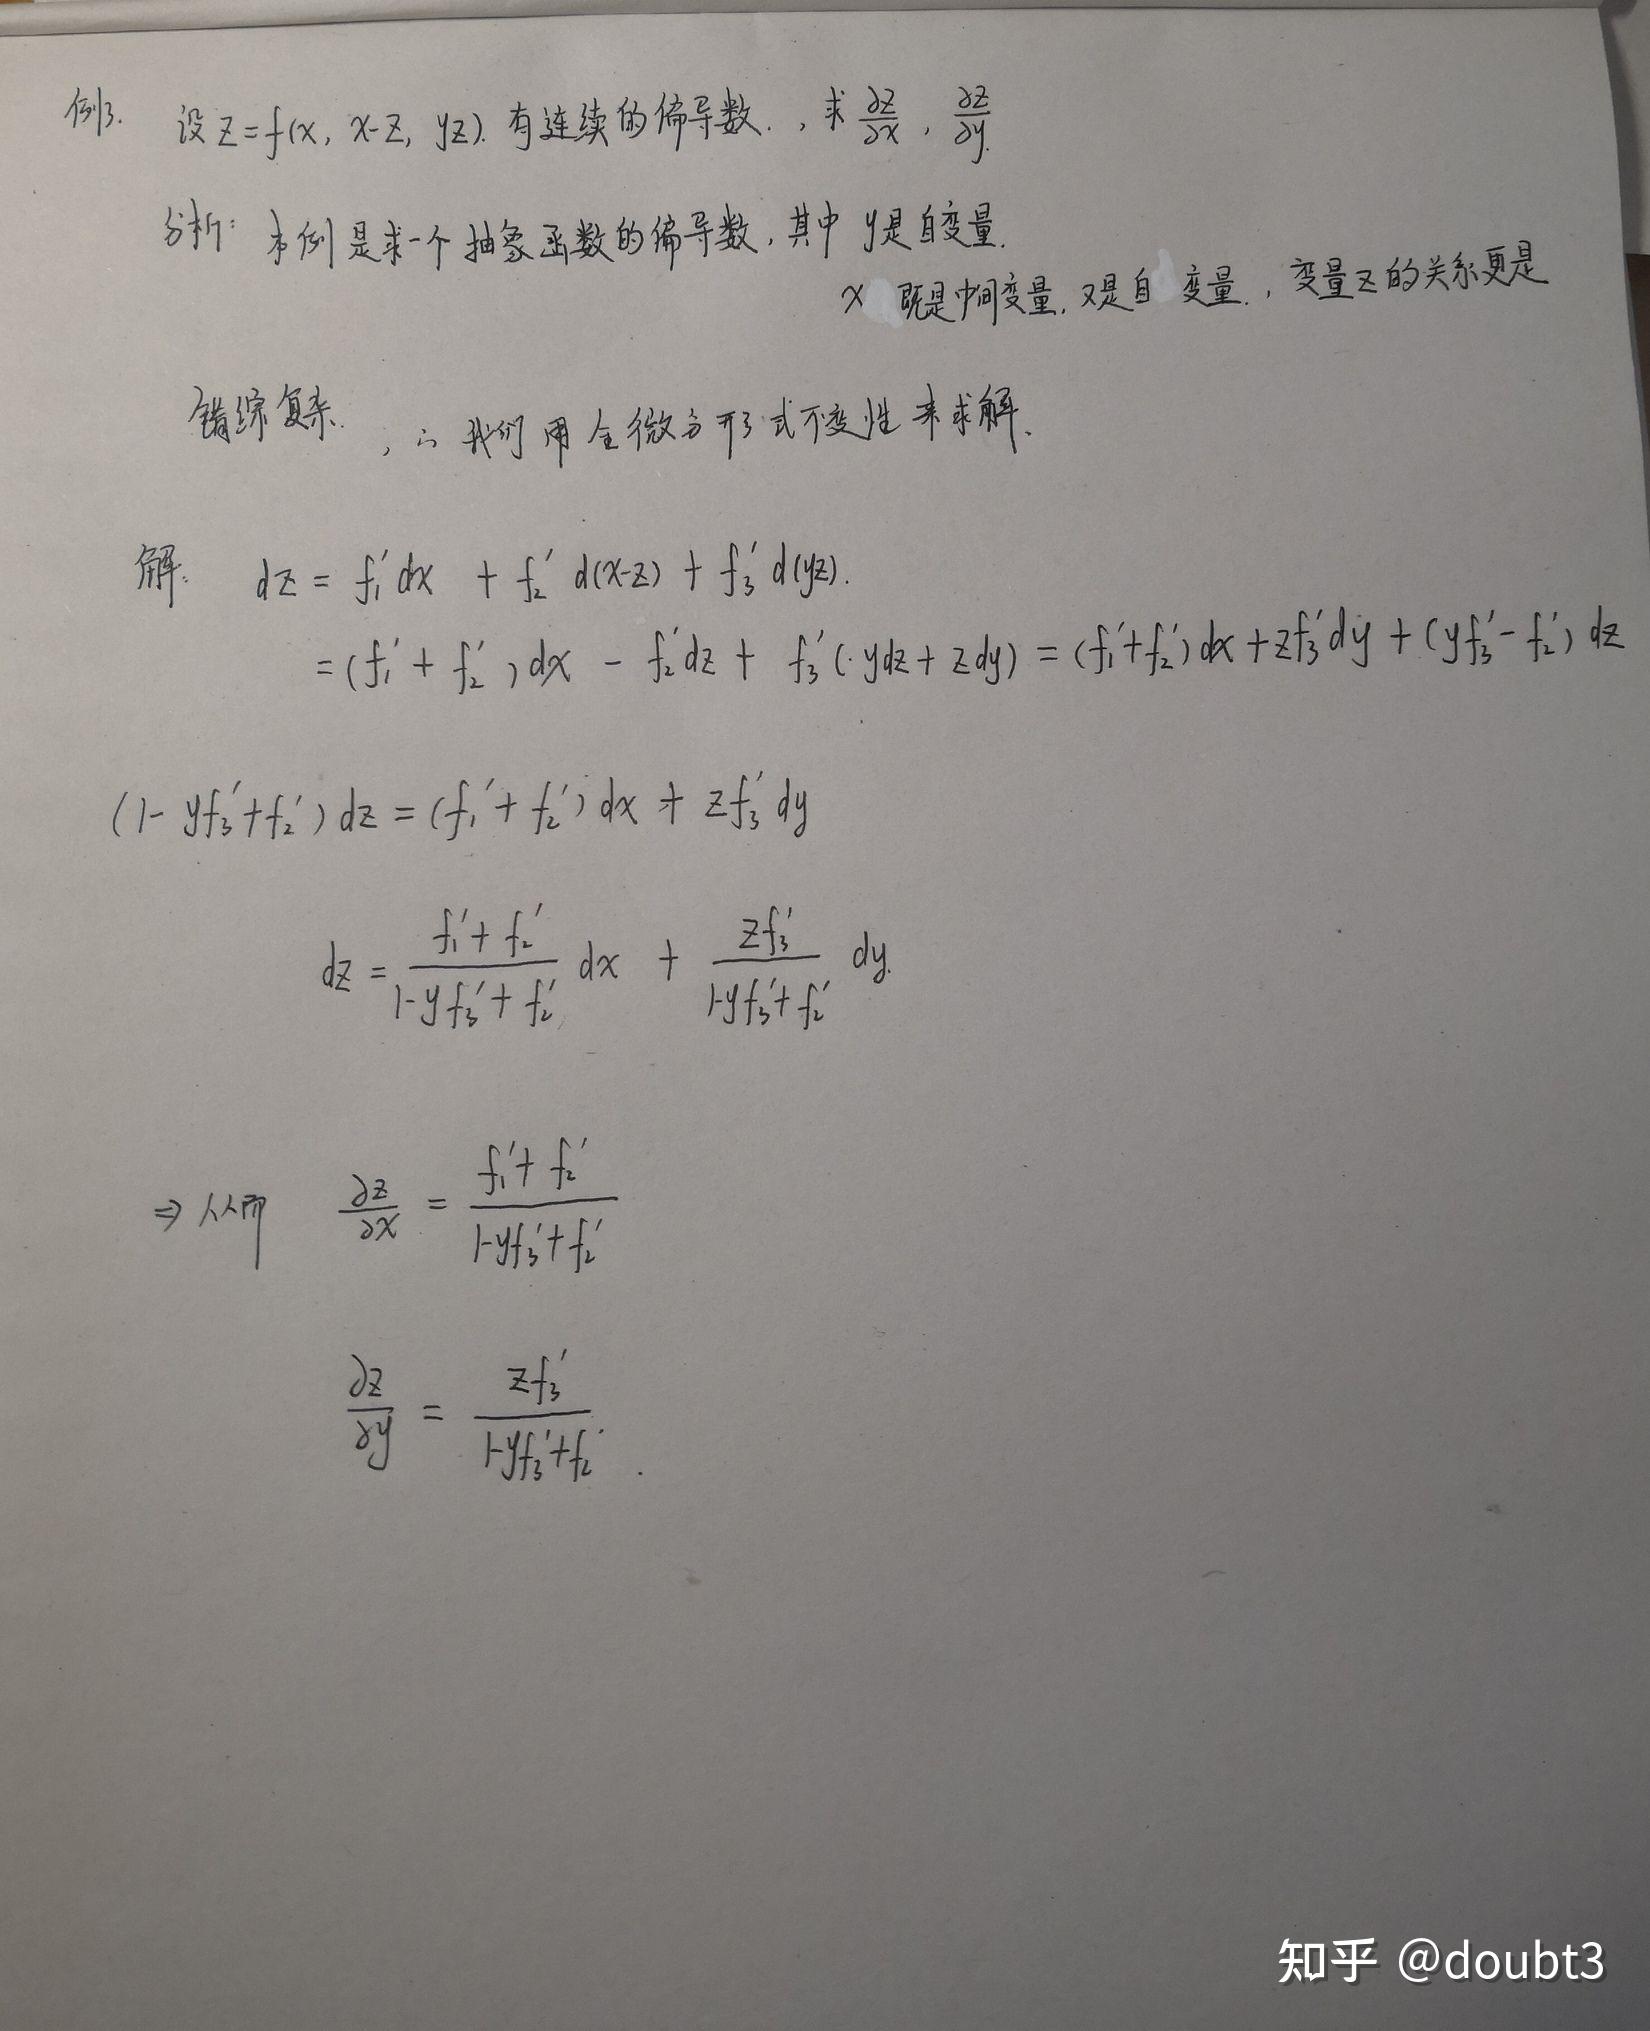 例3. 设 z=f(x, x-z, yz). 有连续的偏导数., 求 ∂z/∂x, ∂z/∂y.
分析: 本例是求一个抽象函数的偏导数, 其中 y是自变量.
x 既是中间变量, 又是自变量., 变量z的关系更是
错综复杂., ∴ 我们用全微分形式不变性来求解.
解: dz = f₁'dx + f₂'d(x-z) + f₃'d(yz).
= (f₁' + f₂')dx - f₂'dz + f₃'(ydz + zdy) = (f₁'+f₂')dx + zf₃'dy + (yf₃' - f₂')dz
(1 - yf₃' + f₂')dz = (f₁' + f₂')dx + zf₃'dy
dz = (f₁' + f₂')/(1 - yf₃' + f₂') dx + zf₃'/(1 - yf₃' + f₂') dy.
⇒ 从而 ∂z/∂x = (f₁' + f₂')/(1 - yf₃' + f₂')
∂z/∂y = zf₃'/(1 - yf₃' + f₂').
知乎 @doubt3